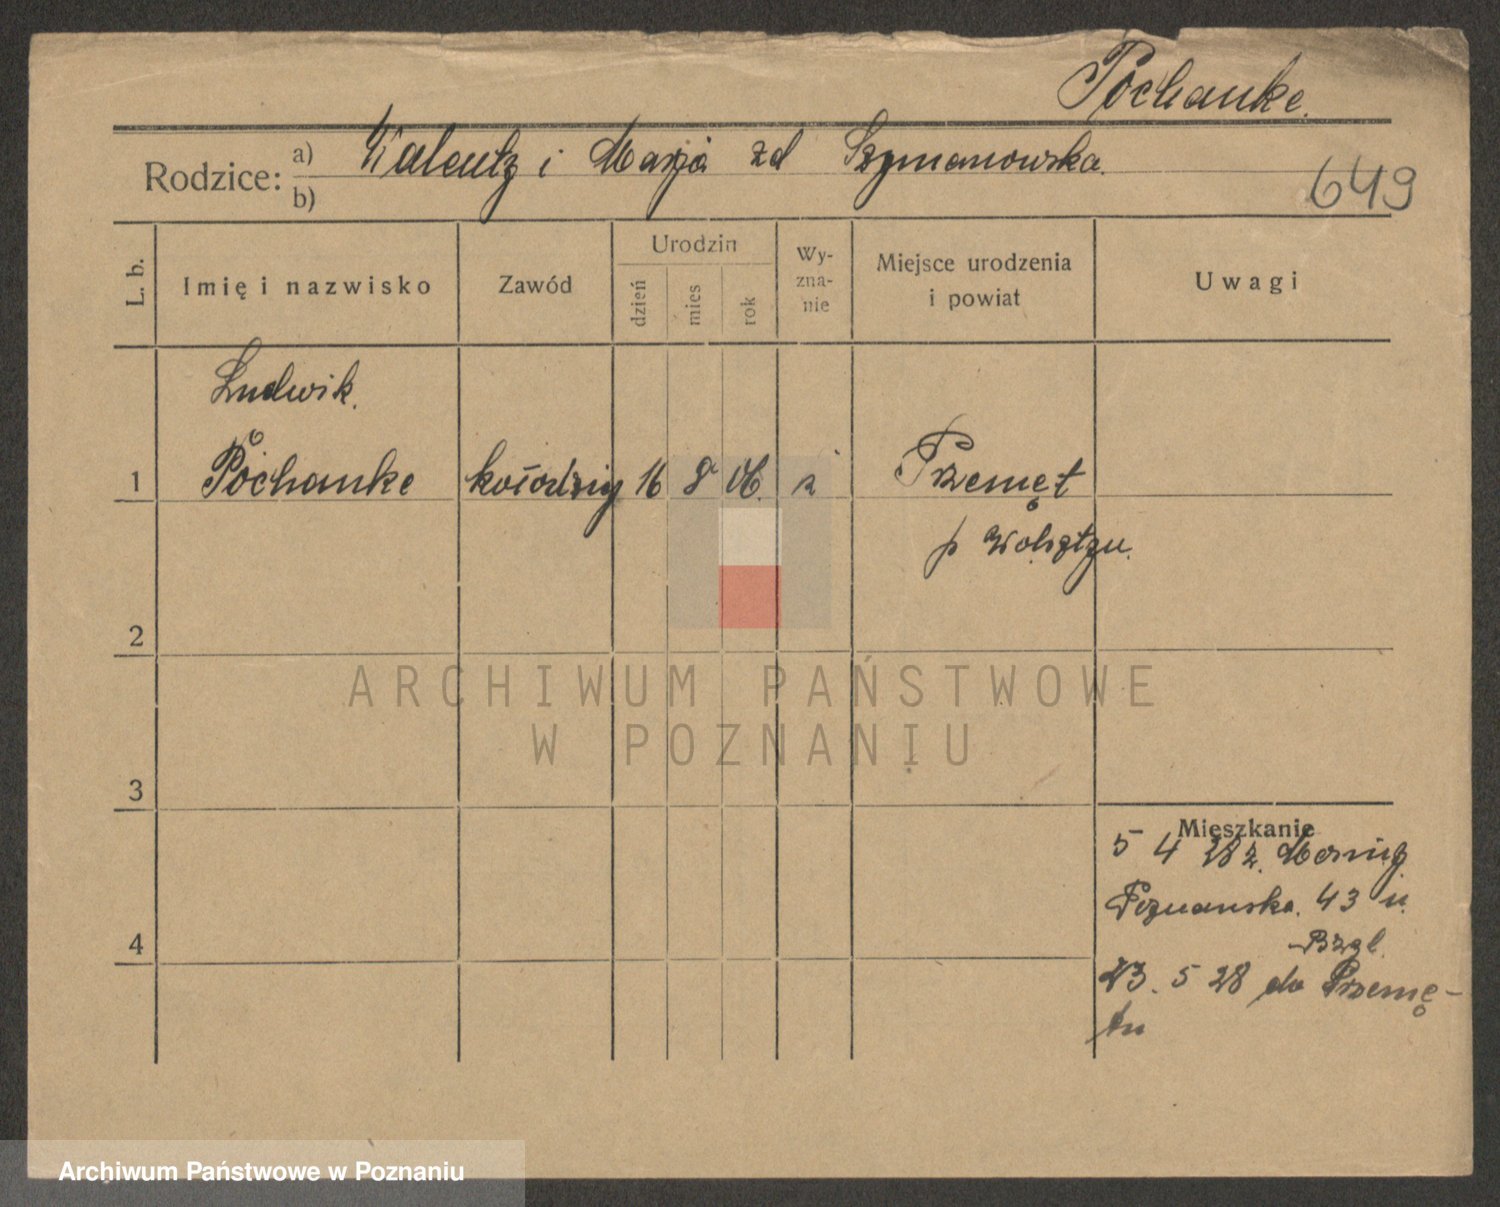 Pochanke.
Rodzice: a) Walenty i Marja zd Szymanowska.
b)
649
L. b.
Imię i nazwisko
Zawód
Urodzin
dzień
mies
rok
Wy-
zna-
nie
Miejsce urodzenia
i powiat
Uwagi
Ludwik.
1 Pochanke kołodziej 16 8 06. Przemęt
p Wolsztyn.
2
3
4
Mieszkanie
5 4 28 z.
Poznańska. 43 u.
23. 5 28 do Przemę-
tu
ARCHIWUM PAŃSTWOWE
W POZNANIU
Archiwum Państwowe w Poznaniu